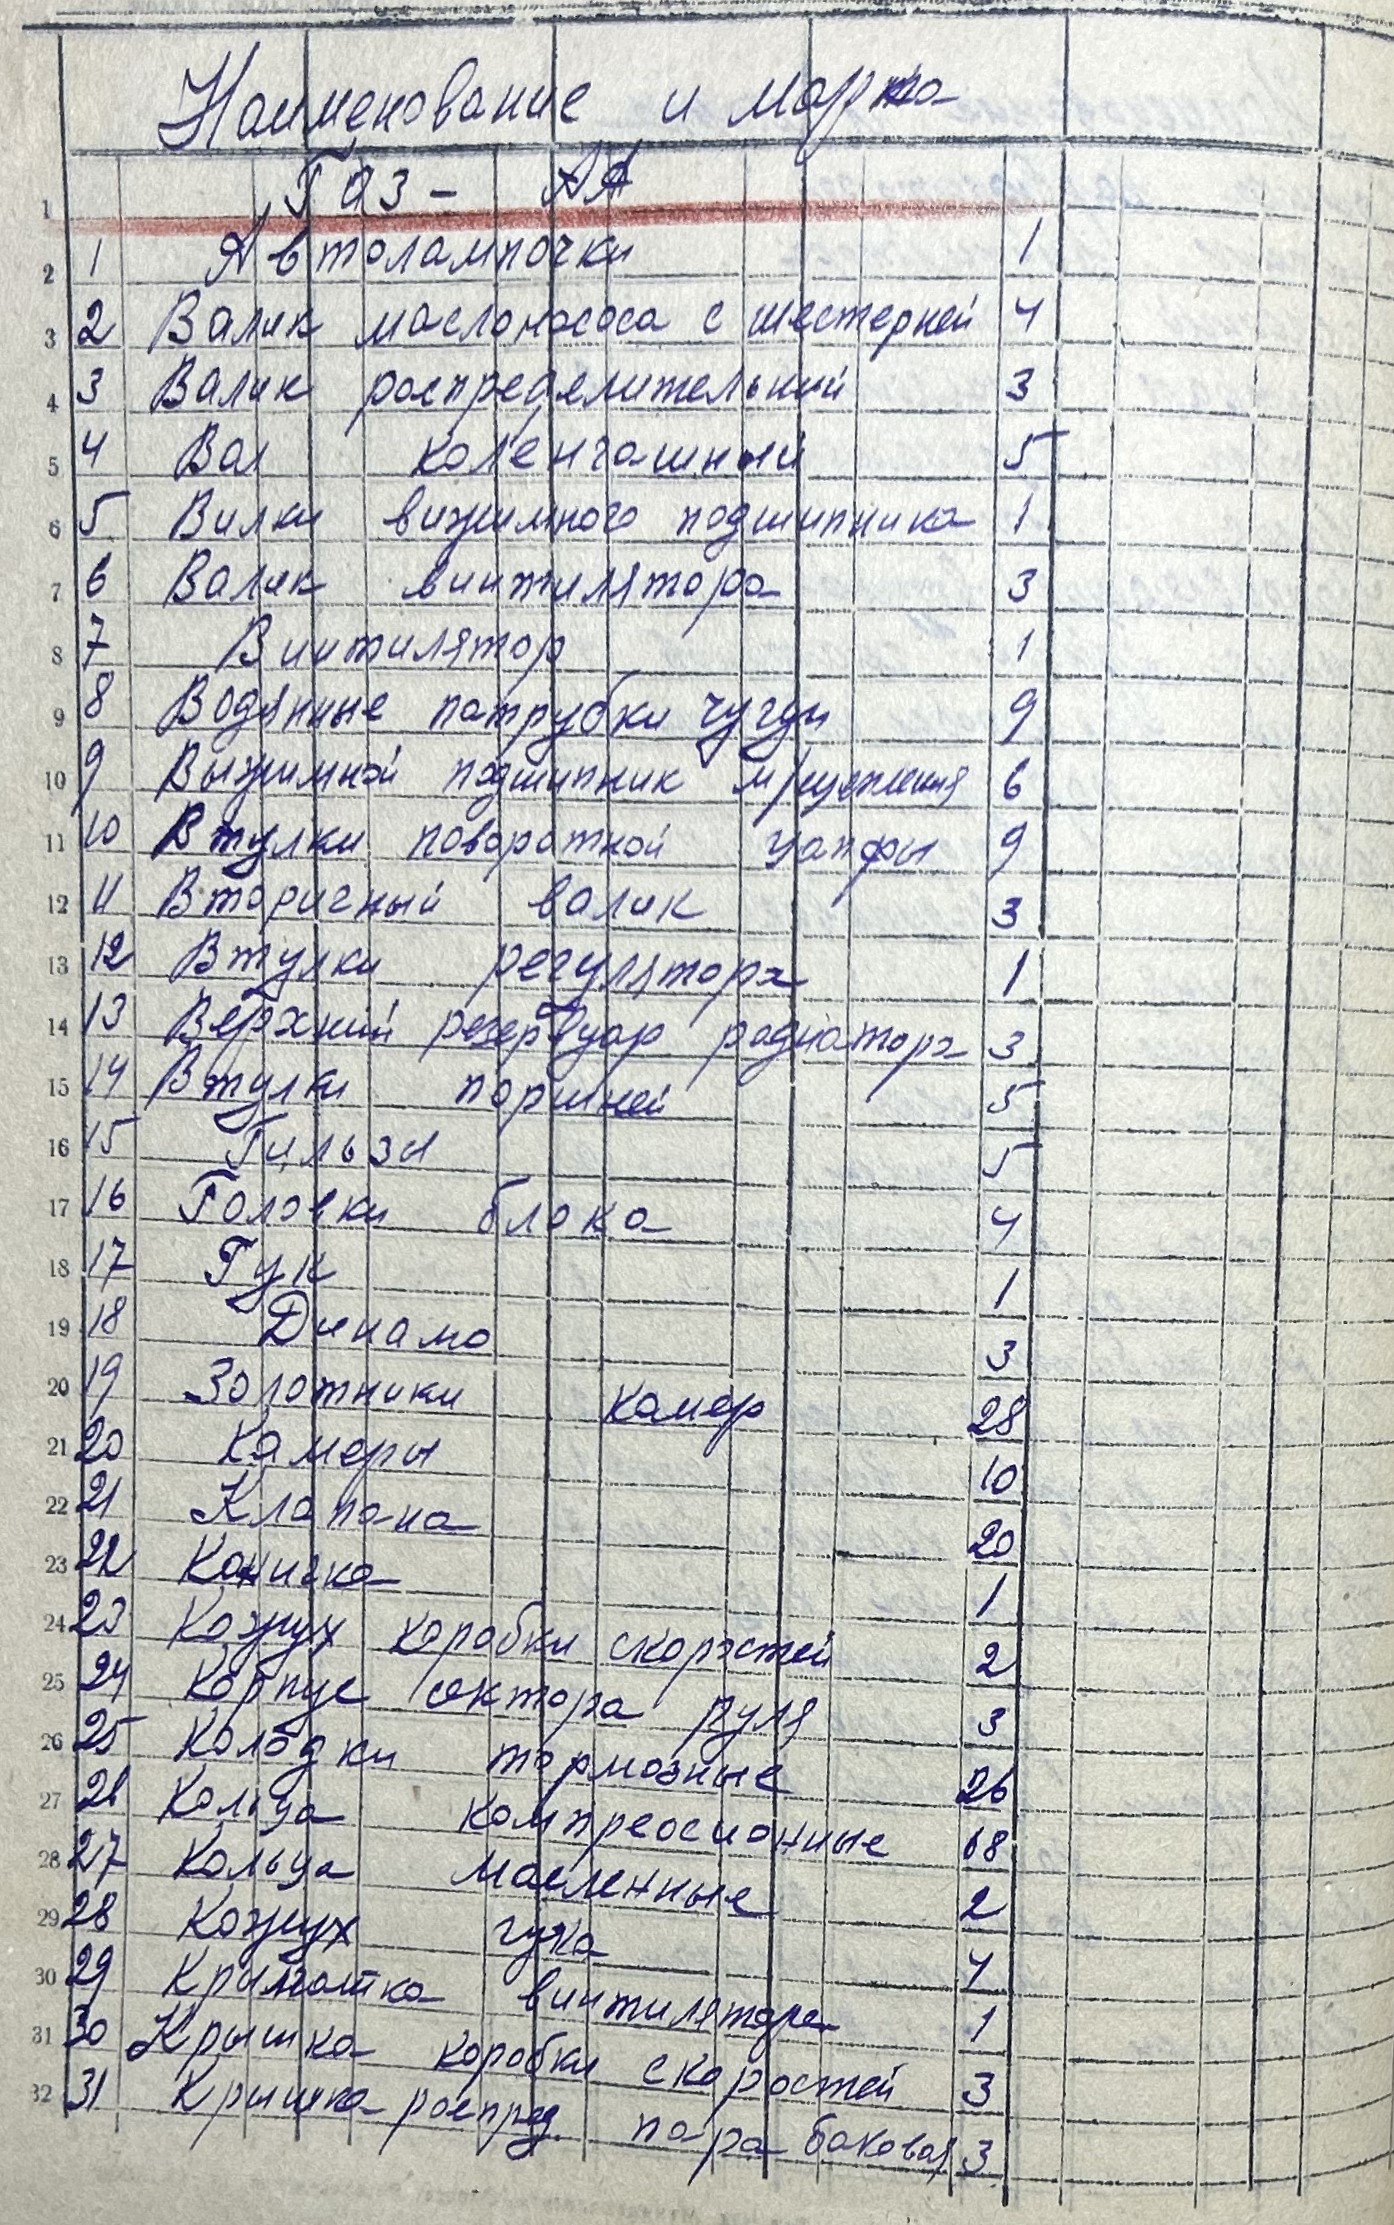 Наименование и марка
1 ГАЗ - АА
2 1 Автолампочки 1
3 2 Валик маслонасоса с шестерней 4
4 3 Валик распределительний 3
5 4 Вал коленчашный 5
6 5 Вилки вижимного подшипника 1
7 6 Валик винтилятора 3
8 7 Винтилятор 1
9 8 Водянные патрубки чугун 9
10 9 Выжимной подшипник 6
11 10 Втулки поворотной цапфы 9
12 11 Вторичный валик 3
13 12 Втулки регулятора 1
14 13 Верхний резервуар радиатора 3
15 14 Втулки поршней 5
16 15 Гильзы 5
17 16 Головки блока 4
18 17 Гук 1
19 18 Динамо 3
20 19 Золотники камер 28
21 20 Камеры 10
22 21 Клапана 20
23 22 1
24 23 Кожух коробки скоростей 2
25 24 Корпус сектора руля 3
26 25 Колодки тормозные 26
27 26 Кольца компрессионные 68
28 27 Кольца масленные 2
29 28 Кожух гука 4
30 29 винтилятора 1
31 30 Крышка коробки скоростей 3
32 31 Крышка распред. пара боковая 3